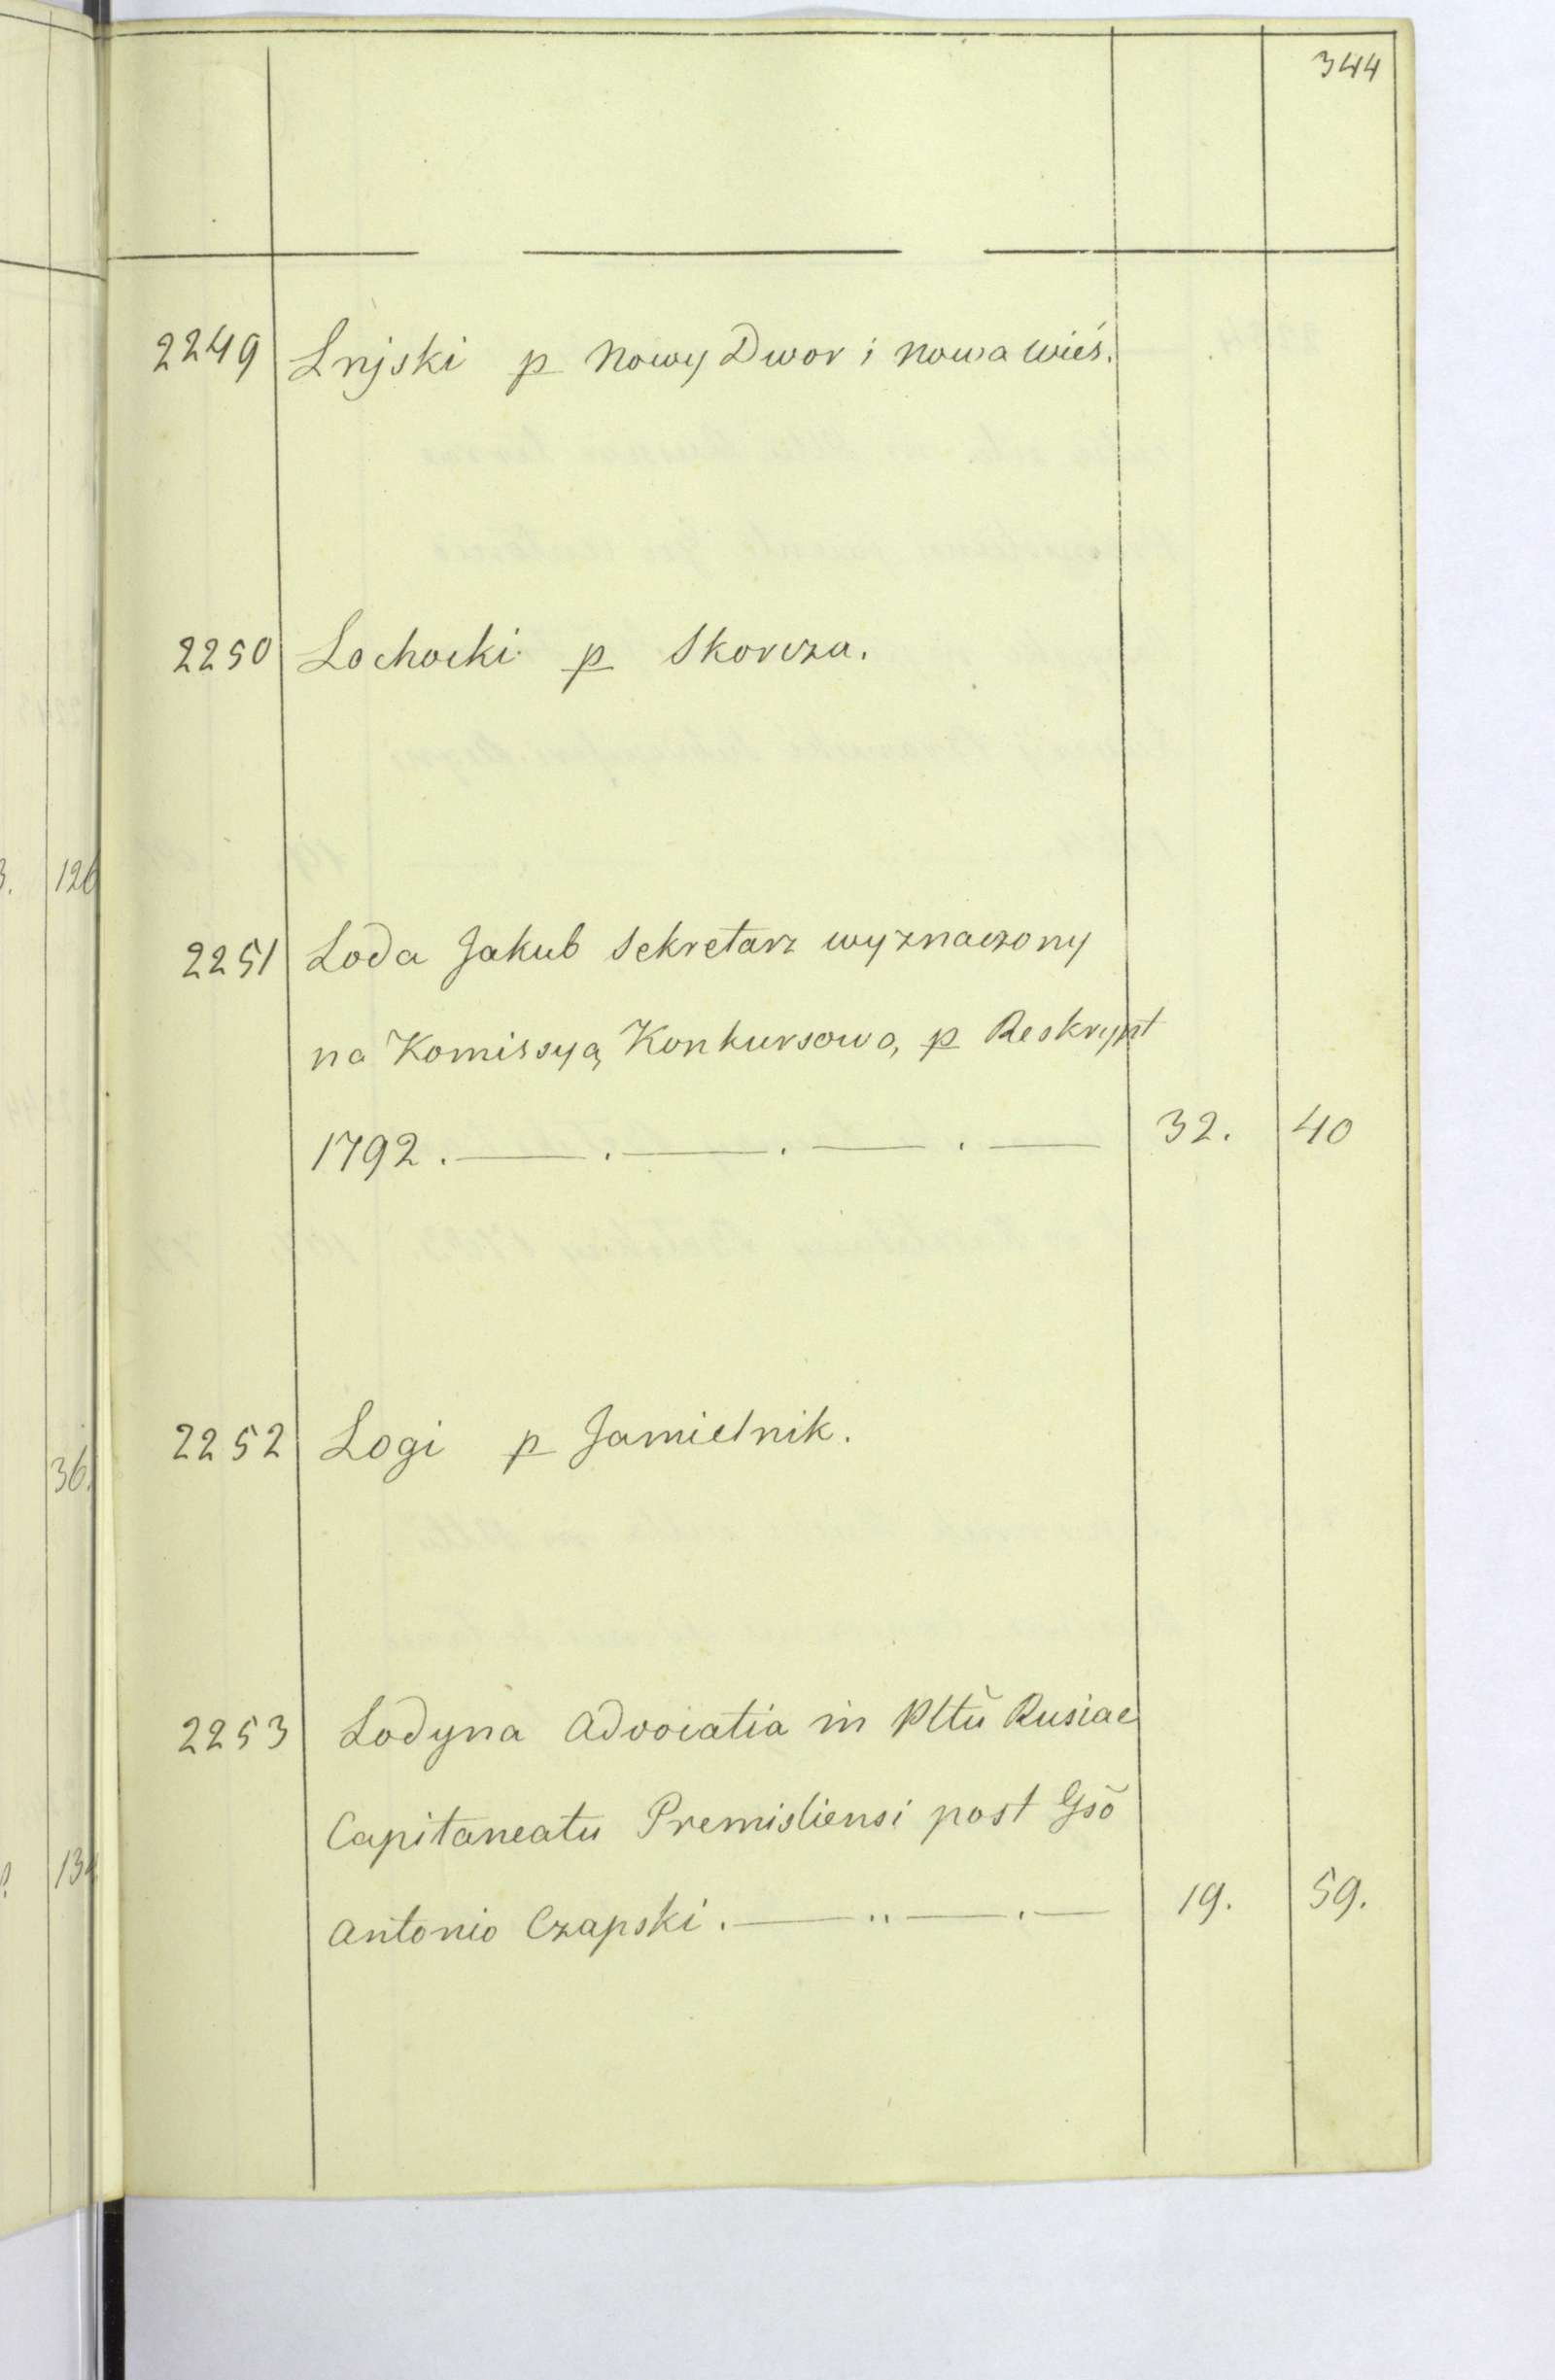 344
2249 Lnjski p Nowy Dwor i nowa wieś.
2250 Lochocki p Skorcza.
2251 Loda Jakub Sekretarz wyznaczony
na Komissyą Konkursową p Reskrypt
1792. — . — . — . — 32. 40
2252 Logi p Jamielnik.
2253 Lodyna advocatia in Pltũ Rusiae
Capitaneatu Premisliensi post Gsõ
Antonio Czapski. — .. — . — 19. 59.
126
36.